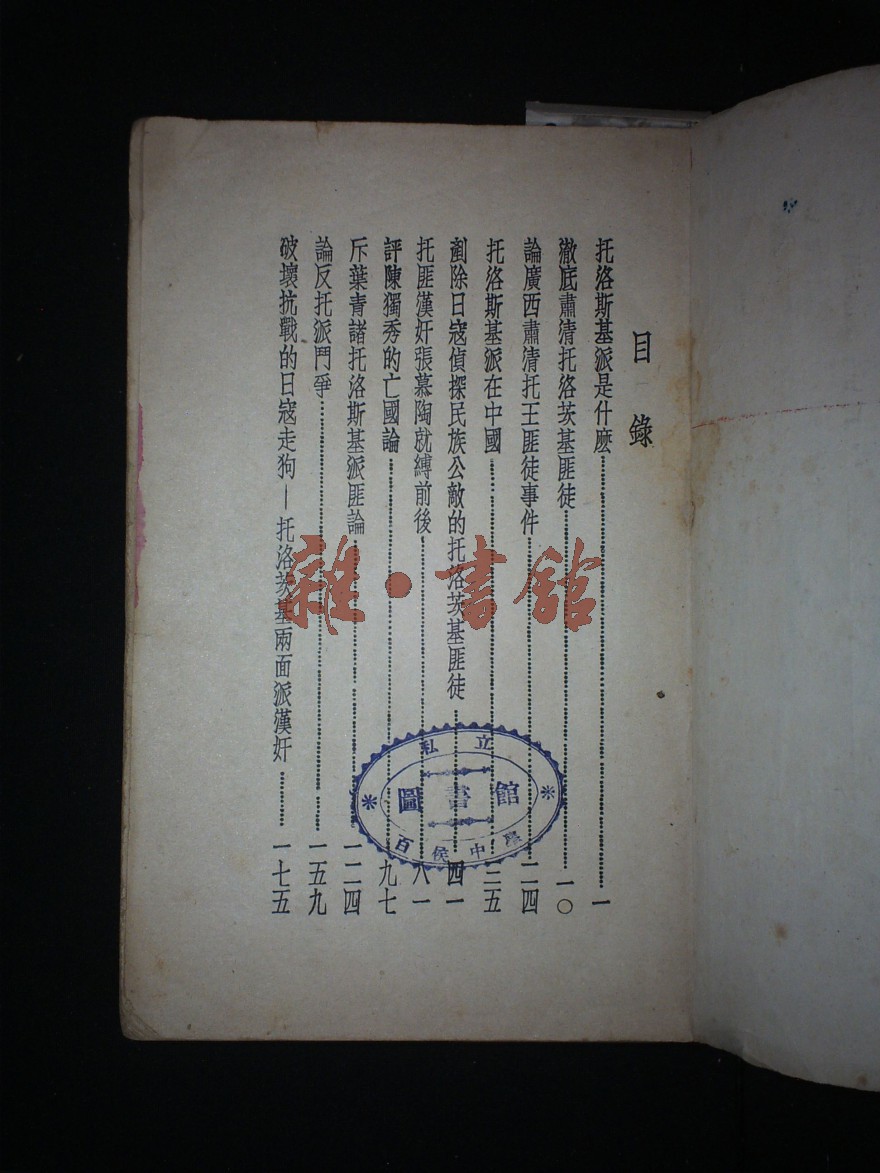 目錄
托洛斯基派是什麽……一
澈底肅清托洛茨基匪徒……一〇
論廣西肅清托王匪徒事件……二四
托洛斯基派在中國……三五
剷除日寇偵探民族公敵的托洛茨基匪徒……四一
托匪漢奸張慕陶就縛前後……八一
評陳獨秀的亡國論……九七
斥葉青諸托洛斯基派匪論……一二四
論反托派鬥爭……一五九
破壞抗戰的日寇走狗—托洛茨基兩面派漢奸……一七五
私立
圖書館
百侯中學
雜·書館